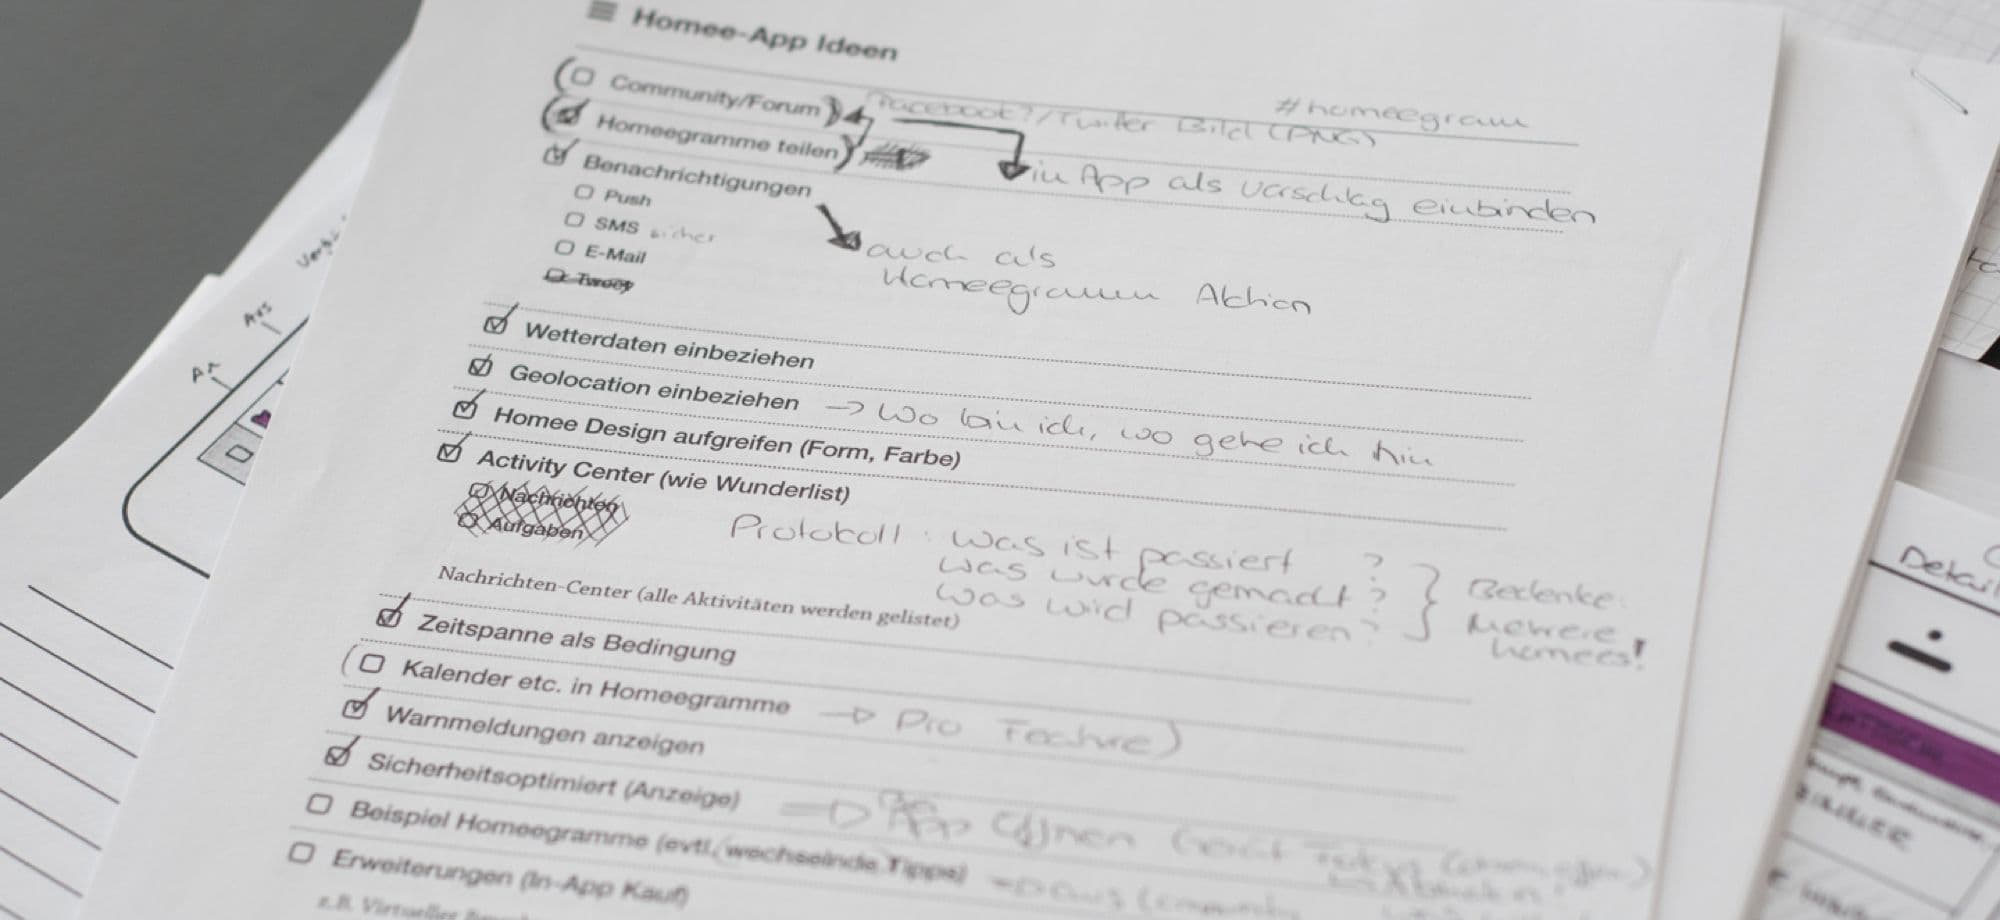 Homee-App Ideen
#homeegram
Community/Forum
Facebook?/Twitter Bild (PNG)
Homeegramme teilen
in App als Vorschlag einbinden
Benachrichtigungen
Push
SMS sicher
E-Mail
auch als
Homeegramm Aktion
Wetterdaten einbeziehen
Geolocation einbeziehen → Wo bin ich, wo gehe ich hin
Homee Design aufgreifen (Form, Farbe)
Activity Center (wie Wunderlist)
Nachrichten
Aufgaben
Protokoll: Was ist passiert ?
Was wurde gemacht ?
Was wird passieren ?
Bedenke:
Mehrere
homees!
Nachrichten-Center (alle Aktivitäten werden gelistet)
Zeitspanne als Bedingung
(Kalender etc. in Homeegramme → Pro Feature)
Warnmeldungen anzeigen
Sicherheitsoptimiert (Anzeige)
App öffnen
Beispiel Homeegramme (evtl. wechselnde Tipps)
Erweiterungen (In-App Kauf)
z.B. Virtueller
Aus
An
Detail